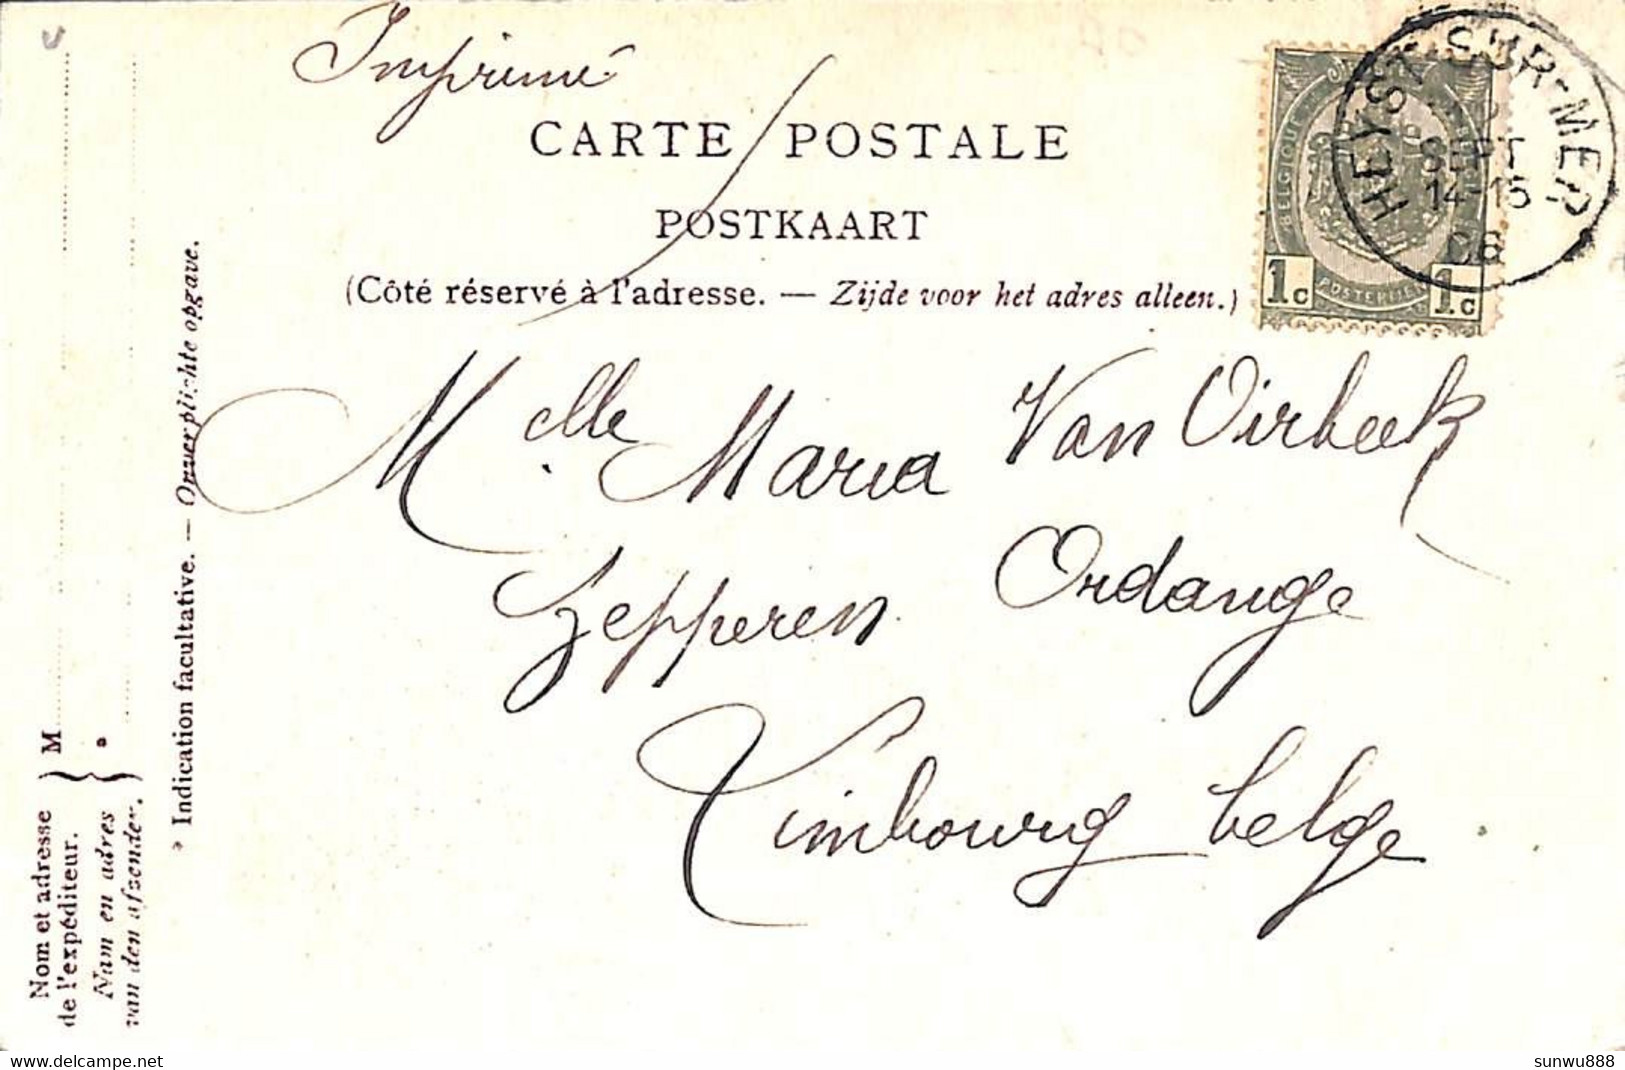 Imprimé
CARTE POSTALE
POSTKAART
(Côté réservé à l'adresse. — Zijde voor het adres alleen.)
BELGIQUE
POSTERIJEN
1c 1c
HEYST-SUR-MER
SEPT
14-15
06
Melle Maria Van Oirbeek
Zepperen Ordange
Limbourg belge
Nom et adresse
de l'expéditeur.
Nam en adres
van den afzender.
M
* Indication facultative. — Onverplichte opgave.
sunwu888
delcampe.net